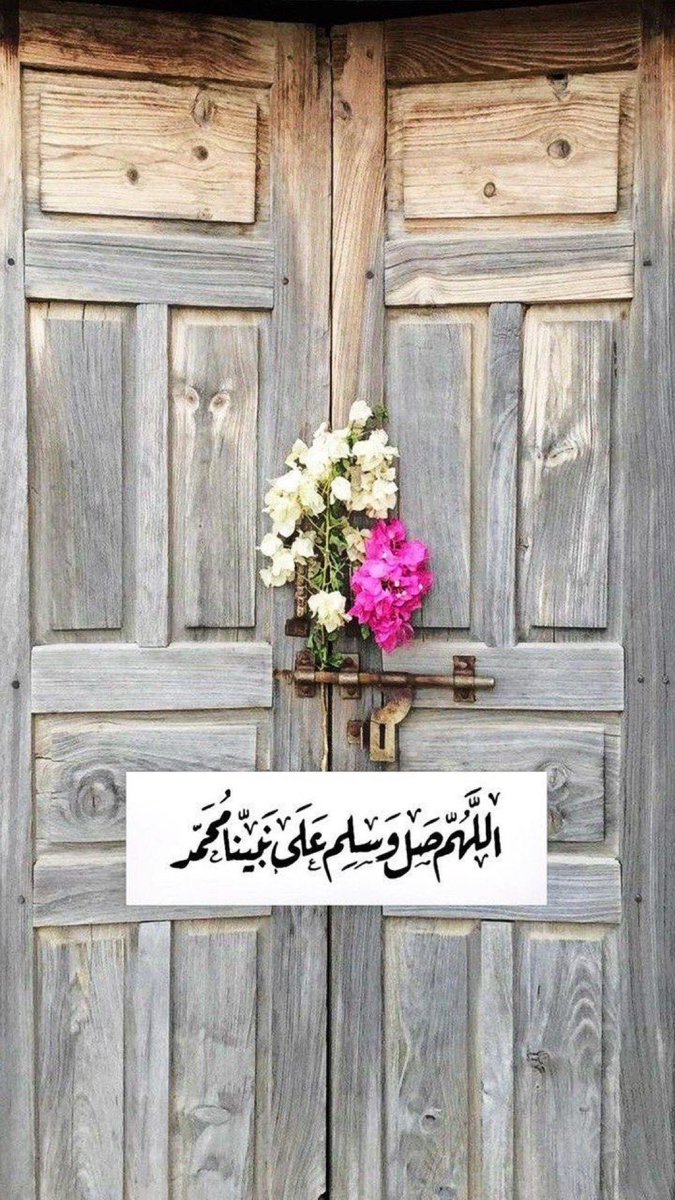 اللَّهُمّ صَل وَسَلِم عَلَى نَبِيّنا مُحَمّد